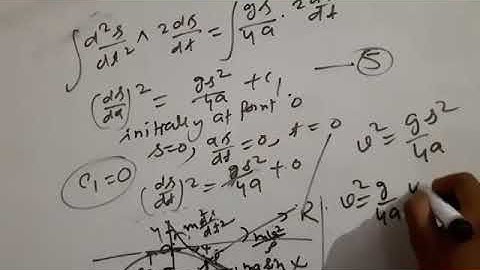 ∫ d²s/dt² ^ 2ds/dt = ∫ gs/4a · 2ds/dt
(ds/da)² = gs²/4a + c₁. — (5)
initially at point O
s=0, ds/dt=0, t=0
c₁=0
(ds/dt)² = gs²/4a + 0
v² = gs²/4a
v² = g/4a
R
X